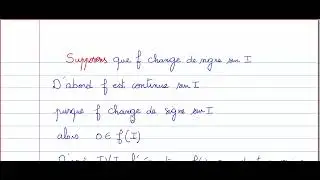 Supposons que f change de signe sur I
D'abord f est continue sur I
puisque f change de signe sur I
alors 0 ∈ f(I)